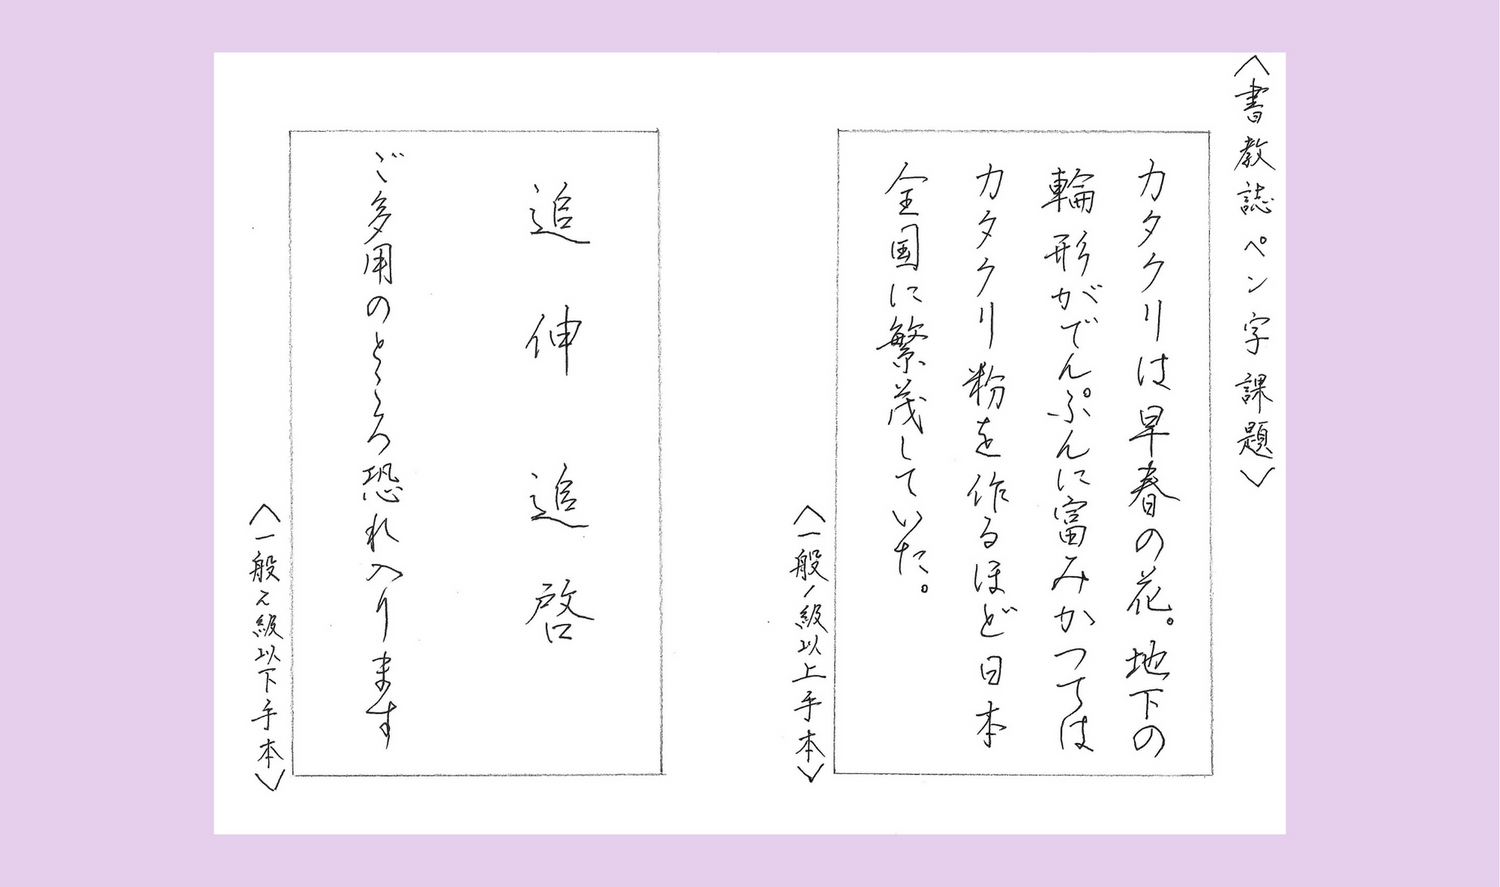 〈書教誌ペン字課題〉
カタクリは早春の花。地下の
輪形がでんぷんに富みかつては
カタクリ粉を作るほど日本
全国に繁茂していた。
〈一般1級以上手本〉
追伸 追啓
ご多用のところ恐れ入ります
〈一般2級以下手本〉